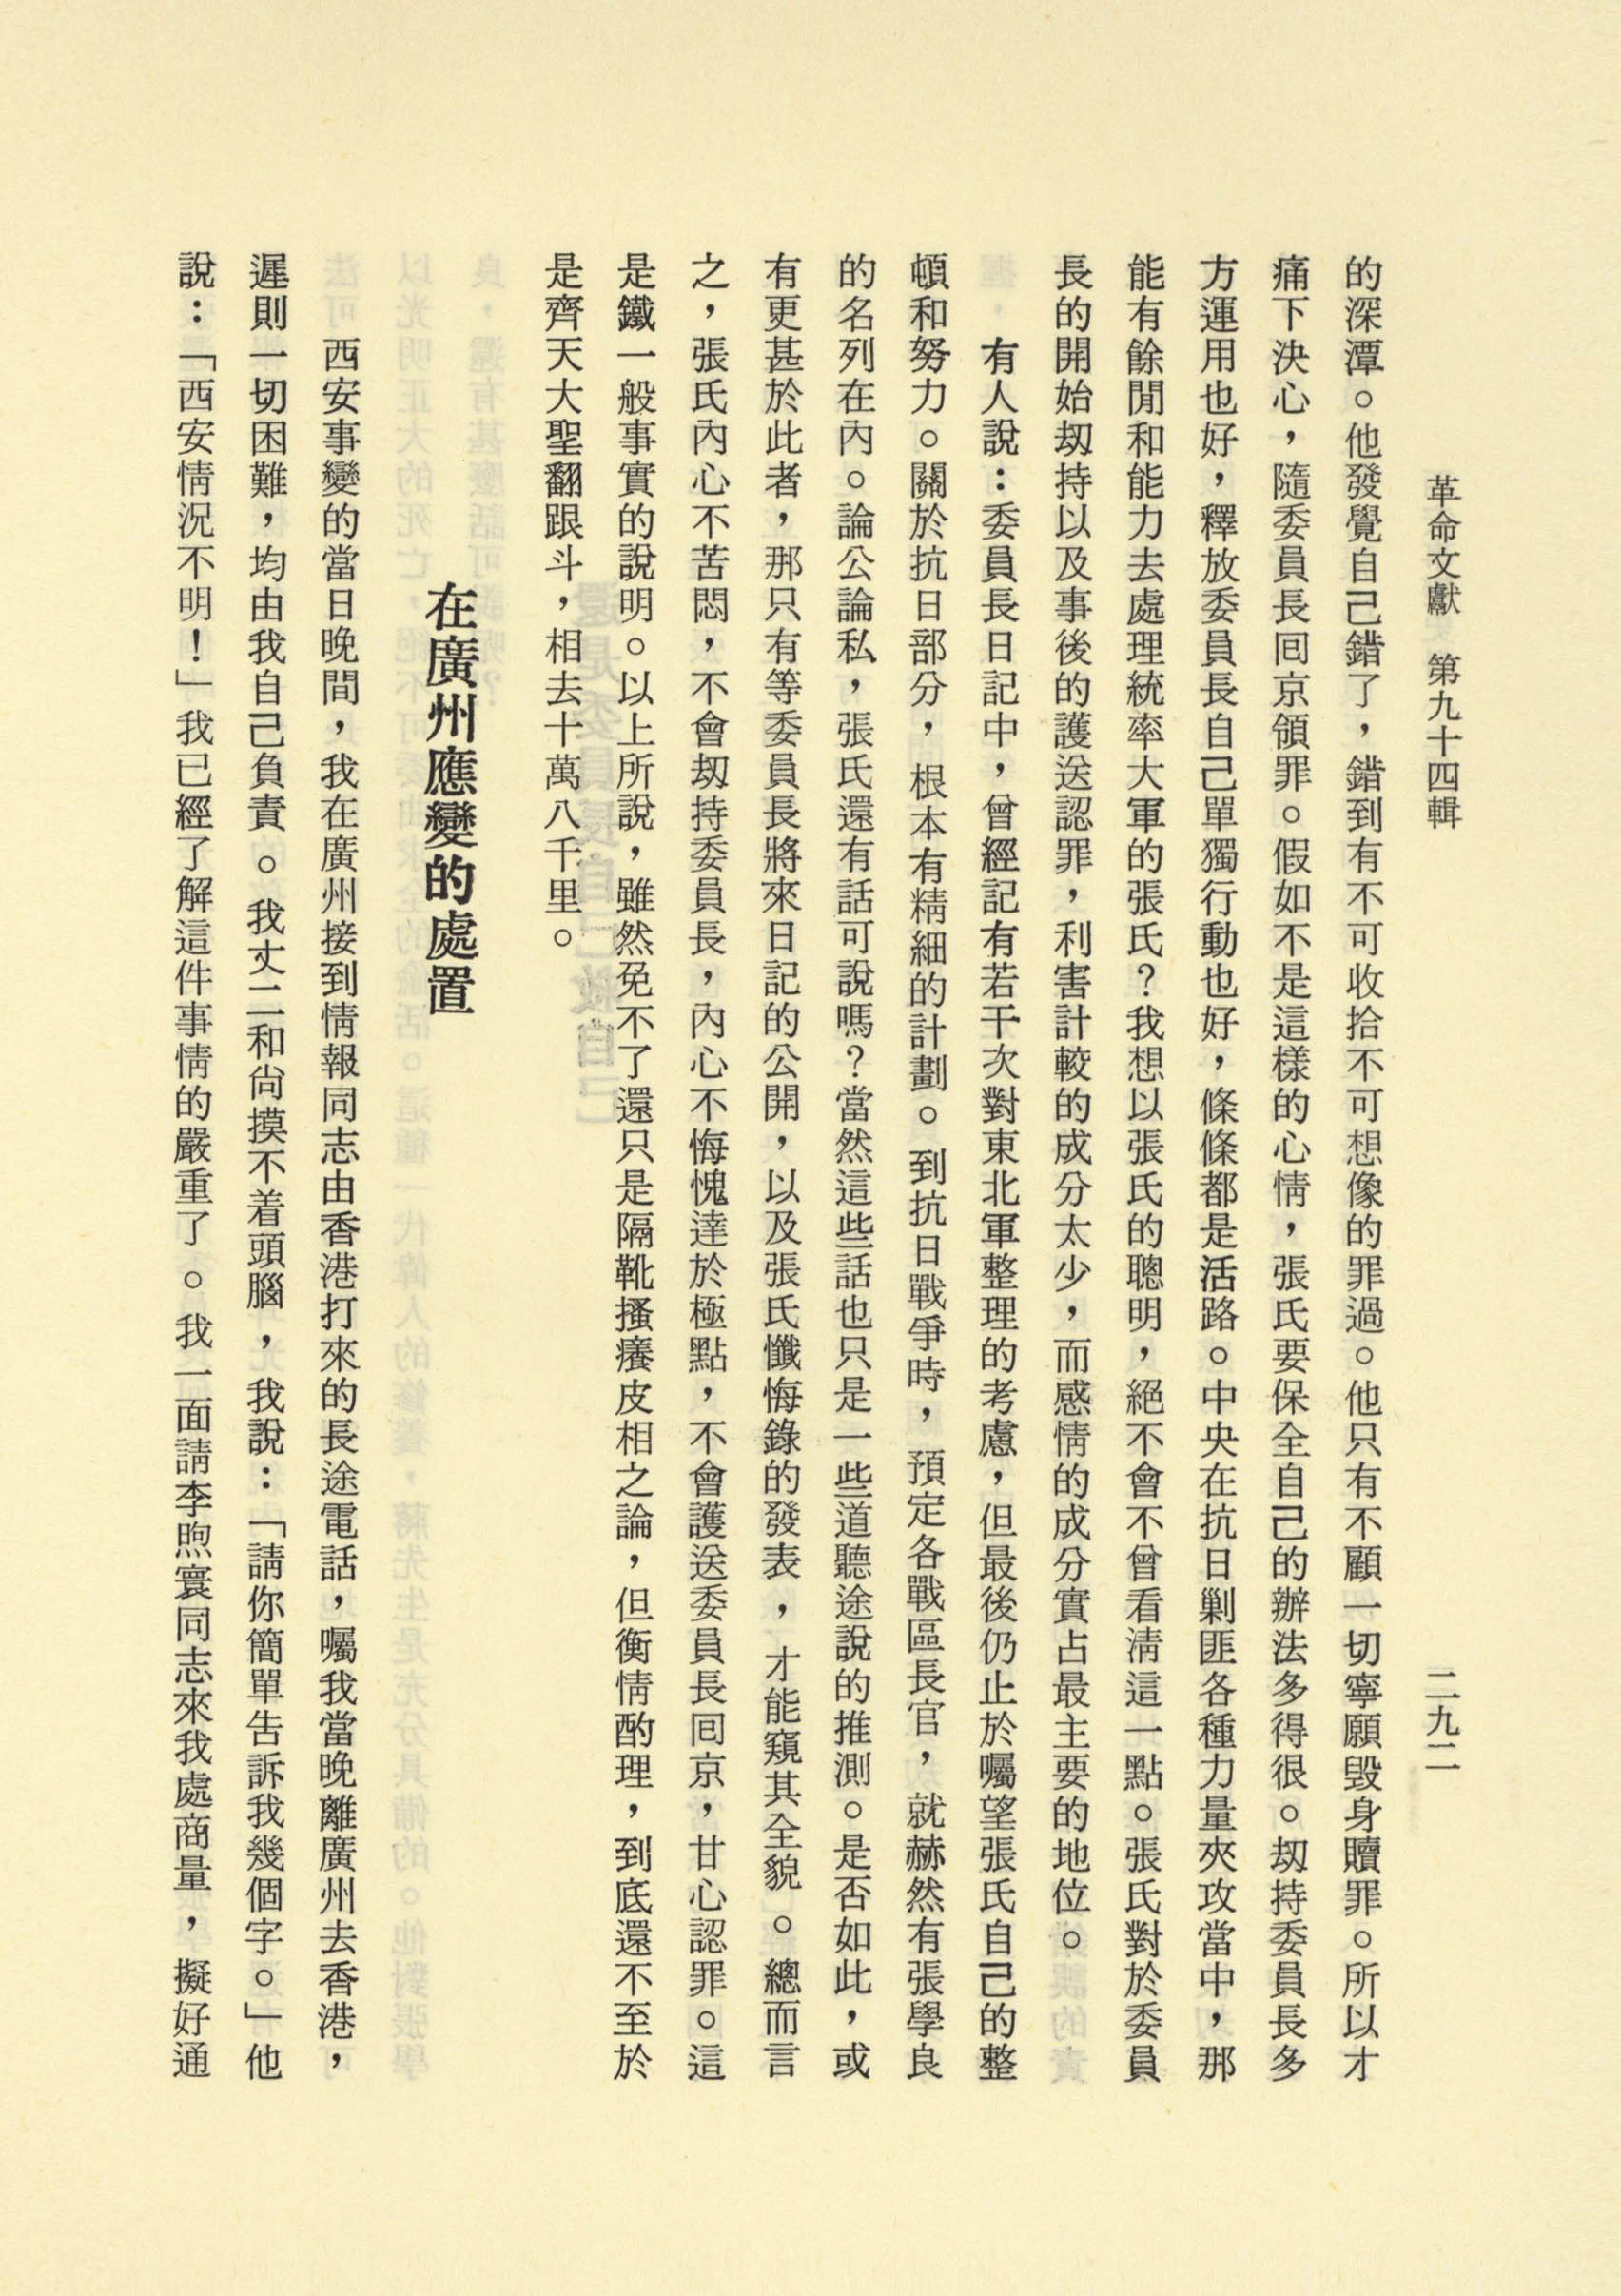 革命文獻　第九十四輯
二九二
的深潭。他發覺自己錯了，錯到有不可收拾不可想像的罪過。他只有不顧一切寧願毀身贖罪。所以才
痛下決心，隨委員長囘京領罪。假如不是這樣的心情，張氏要保全自己的辦法多得很。刼持委員長多
方運用也好，釋放委員長自己單獨行動也好，條條都是活路。中央在抗日剿匪各種力量夾攻當中，那
能有餘閒和能力去處理統率大軍的張氏？我想以張氏的聰明，絕不會不曾看淸這一點。張氏對於委員
長的開始刼持以及事後的護送認罪，利害計較的成分太少，而感情的成分實占最主要的地位。
有人說：委員長日記中，曾經記有若干次對東北軍整理的考慮，但最後仍止於囑望張氏自己的整
頓和努力。關於抗日部分，根本有精細的計劃。到抗日戰爭時，預定各戰區長官，就赫然有張學良
的名列在內。論公論私，張氏還有話可說嗎？當然這些話也只是一些道聽途說的推測。是否如此，或
有更甚於此者，那只有等委員長將來日記的公開，以及張氏懺悔錄的發表，才能窺其全貌。總而言
之，張氏內心不苦悶，不會刼持委員長，內心不悔愧達於極點，不會護送委員長囘京，甘心認罪。這
是鐵一般事實的說明。以上所說，雖然免不了還只是隔靴搔癢皮相之論，但衡情酌理，到底還不至於
是齊天大聖翻跟斗，相去十萬八千里。
在廣州應變的處置
西安事變的當日晚間，我在廣州接到情報同志由香港打來的長途電話，囑我當晚離廣州去香港，
遲則一切困難，均由我自己負責。我丈二和尙摸不着頭腦，我說：「請你簡單告訴我幾個字。」他
說：「西安情況不明！」我已經了解這件事情的嚴重了。我一面請李煦寰同志來我處商量，擬好通